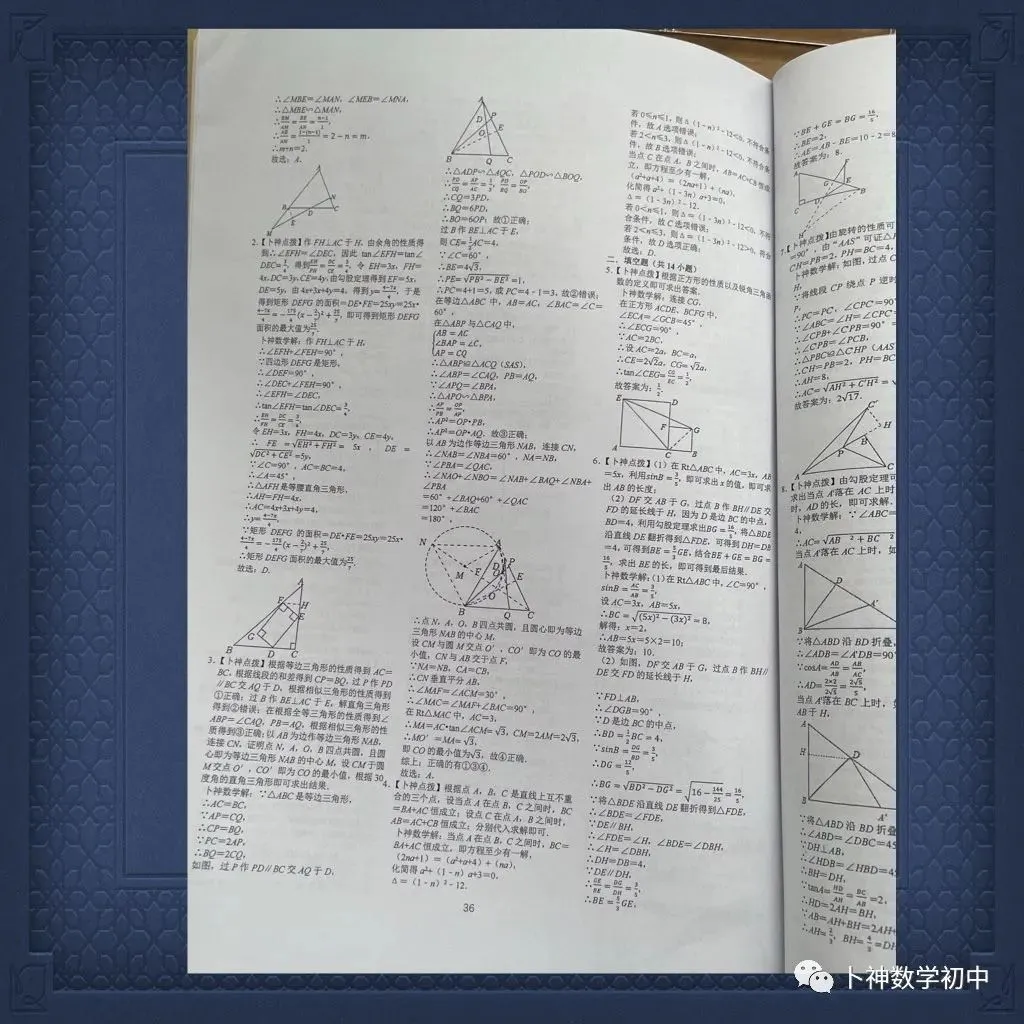 ∴∠MBE=∠MAN，∠MEB=∠MNA，
∴△MBE∽△MAN，
∴m+n=2.
故选：A.
2.【卜神点拨】作 FH⊥AC 于 H，由余角的性质得
到∠EFH=∠DEC，因此 tan∠EFH=tan∠
4x,DC=3y,CE=4y,由勾股定理得到 EF=5x，
DE=5y，由 4x+3x+4y=4，得到y=(4−7x)/4，于是
得到矩形 DEFG 的面积=DE•FE=25xy=25x•
面积的最大值为25/7.
卜神数学解：作 FH⊥AC 于 H，
∴∠EFH+∠FEH=90°，
∵四边形 DEFG 是矩形，
∴∠DEF=90°，
∴∠DEC+∠FEH=90°，
∴∠EFH=∠DEC，
∴tan∠EFH=tan∠DEC=3/4，
∴EH/FH=DC/CE=3/4，
令 EH=3x，FH=4x，DC=3y，CE=4y，
∴FE=√(EH²+FH²)=5x，DE=
√(DC²+CE²)=5y，
∵∠C=90°，AC=BC=4，
∴∠A=45°，
∴△AFH 是等腰直角三角形，
∴AH=FH=4x，
∴AC=4x+3x+4y=4，
∴y=(4−7x)/4，
∵矩形 DEFG 的面积=DE•FE=25xy=25x•
∴矩形 DEFG 面积的最大值为25/7，
故选：D.
3.【卜神点拨】根据等边三角形的性质得到 AC=
BC，根据线段的和差得到 CP=BQ，过 P 作 PD
∥BC 交 AQ 于 D，根据相似三角形的性质得到
①正确；过 B 作 BE⊥AC 于 E，解直角三角形
得到②错误；在根据全等三角形的性质得到∠
ABP=∠CAQ，PB=AQ，根据相似三角形的性
质得到③正确；以 AB 为边作等边三角形 NAB，
连接 CN，证明点 N，A，O，B 四点共圆，且圆
心即为等边三角形 NAB 的中心 M，设 CM 于圆
M 交点 O′，CO′即为 CO 的最小值，根据 30
度角的直角三角形即可求出结果.
卜神数学解：∵△ABC 是等边三角形，
∴AC=BC，
∵AP=CQ，
∴CP=BQ，
∵PC=2AP，
∴BQ=2CQ，
如图，过 P 作 PD∥BC 交 AQ 于 D，
∴△ADP∽△AQC，△POD∽△BOQ，
∴PD/CQ=AP/AC=1/3，PD/BQ=OP/BO，
∴CQ=3PD，
∴BQ=6PD，
∴BO=6OP；故①正确；
过 B 作 BE⊥AC 于 E，
则 CE=1/2AC=4，
∵∠C=60°，
∴BE=4√3，
∴PE=√(PB²−BE²)=1，
∴PC=4+1=5，或 PC=4﹣1=3，故②错误；
在等边△ABC 中，AB=AC，∠BAC=∠C=
60°，
在△ABP 与△CAQ 中，
AB = AC
∠BAP = ∠C，
AP = CQ
∴△ABP≌△ACQ（SAS），
∴∠ABP=∠CAQ，PB=AQ，
∵∠APO=∠BPA，
∴△APO∽△BPA，
∴AP/PB=OP/AP，
∴AP²=OP•PB，
∴AP²=OP•AQ．故③正确；
以 AB 为边作等边三角形 NAB，连接 CN，
∴∠NAB=∠NBA=60°，NA=NB，
∵∠PBA=∠QAC，
∴∠NAO+∠NBO=∠NAB+∠BAQ+∠NBA+
∠PBA
=60°+∠BAQ+60°+∠QAC
=120°+∠BAC
=180°，
∴点 N，A，O，B 四点共圆，且圆心即为等边
三角形 NAB 的中心 M，
设 CM 与圆 M 交点 O′，CO′即为 CO 的最
小值，CN 与 AB 交于点 F，
∵NA=NB，CA=CB，
∴CN 垂直平分 AB，
∴∠MAF=∠ACM=30°，
∴∠MAC=∠MAF+∠BAC=90°，
在 Rt△MAC 中，AC=3，
∴MA=AC•tan∠ACM=√3，CM=2AM=2√3，
∴MO′=MA=√3，
即 CO 的最小值为√3，故④正确.
综上：正确的有①③④.
故选：A.
4.【卜神点拨】根据点 A，B，C 是直线上互不重
合的三个点，设当点 A 在点 B，C 之间时，BC
=BA+AC 恒成立；设点 C 在点 A，B 之间时，
AB=AC+CB 恒成立；分别代入求解即可.
卜神数学解：当点 A 在点 B，C 之间时，BC=
BA+AC 恒成立，即方程至少有一解，
（2na+1）=（a²+a+4）+（na），
化简得 a²+（1﹣n）a+3=0，
Δ=（1﹣n）²﹣12.
若 0≤n≤1，则 Δ（1﹣n）²﹣12<0，不符合条
件，故 A 选项错误；
若 2<n≤3，则 Δ（1﹣n）²﹣12<0，不符合条
件，故 B 选项错误；
当点 C 在点 A，B 之间时，AB=AC+CB 恒成
立，即方程至少有一解，
（a²+a+4）=（2na+1）+（na），
化简得 a²+（1﹣3n）a+3=0，
Δ=（1﹣3n）²﹣12.
若 0<n≤1，则 Δ=（1﹣3n）²﹣12<0，不符
合条件，故 C 选项错误；
若 2<n≤3，则 Δ=（1﹣3n）²﹣12>0，符合
条件，故 D 选项正确.
故选：D.
二．填空题（共 14 小题）
5.【卜神点拨】根据正方形的性质以及锐角三角函
数的定义即可求出答案.
卜神数学解：连接 CG，
在正方形 ACDE、BCFG 中，
∠ECA=∠GCB=45°，
∴∠ECG=90°，
∵AC=2BC，
∴设 AC=2a，BC=a，
∴CE=2√2a，CG=√2a，
∴tan∠CEG=CG/EC=1/2，
故答案为：1/2.
6.【卜神点拨】（1）在 Rt△ABC 中，AC=3x，AB
=5x，利用sinB=3/5，即可求出 x 的值，即可求
出 AB 的长度；
（2）DF 交 AB 于 G，过点 B 作 BH∥DE 交
FD 的延长线于 H，因为 D 是边 BC 的中点，
BD=4，利用勾股定理求出BG=16/5，将△BDE
沿直线 DE 翻折得到△FDE，可得到 DH=DB
=4，可得到BE=5/3GE，结合BE+GE=BG=
16/5，求出 BE 的长，即可得到最后结果.
卜神数学解：（1）在 Rt△ABC 中，∠C=90°，
sinB=AC/AB=3/5，
设 AC=3x，AB=5x，
∴BC=√((5x)²−(3x)²)=8，
解得：x=2，
∴AB=5x=5×2=10；
故答案为：10.
（2）如图，DF 交 AB 于 G，过点 B 作 BH∥
DE 交 FD 的延长线于 H，
∵FD⊥AB，
∴∠DGB=90°，
∵D 是边 BC 的中点，
∴BD=1/2BC=4，
∵sinB=DG/BD=3/5，
∴DG=12/5，
∴BG=√(BD²−DG²)=√(16−144/25)=16/5，
∵将△BDE 沿直线 DE 翻折得到△FDE，
∴∠BDE=∠FDE，
∵DE∥BH，
∴∠FDE=∠H，∠BDE=∠DBH，
∴∠H=∠DBH，
∴DH=DB=4，
∵DE∥DH，
∴GE/BE=DG/DH=3/5，
∴BE=5/3GE，
36
∵BE+GE=BG=16/5，
∴BE=2，
∴AE=AB﹣BE=10﹣2=8
故答案为：8.
7.【卜神点拨】由旋转的性质可
=90°，由“AAS”可证△P
CH=PB=2，PH=BC=4，
卜神数学解：如图，过点 C′
∵将线段 CP 绕点 P 逆时
∴PC=PC′，∠CPC′=90°
∵∠ABC=∠H=∠CPC′=
∴∠CPB+∠C′PB=90°=
∴∠C′PB=∠PCB，
∴△PBC≌△C′HP（AAS
∴CH=PB=2，PH=BC
∴AH=8，
故答案为：2√17.
8.【卜神点拨】由勾股定理可
求出当点 A′落在 AC 上时
时，AD 的长，即可求解.
卜神数学解：∵∠ABC=
4，
当点 A′落在 AC 上时，如
∵将△ABD 沿 BD 折叠，
∴∠ADB=∠A′DB=90°
∵cosA=AD/AB=AB/AC，
当点 A′落在 BC 上时，如
AB 于 H，
∵将△ABD 沿 BD 折叠
∴∠ABD=∠DBC=45
∵DH⊥AB，
∴∠HDB=∠HBD=45
∴BH=DH，
∵tanA=HD/AH=BC/AB=2，
∴HD=2AH=BH，
∵AB=AH+BH=2AH+
卜神数学初中